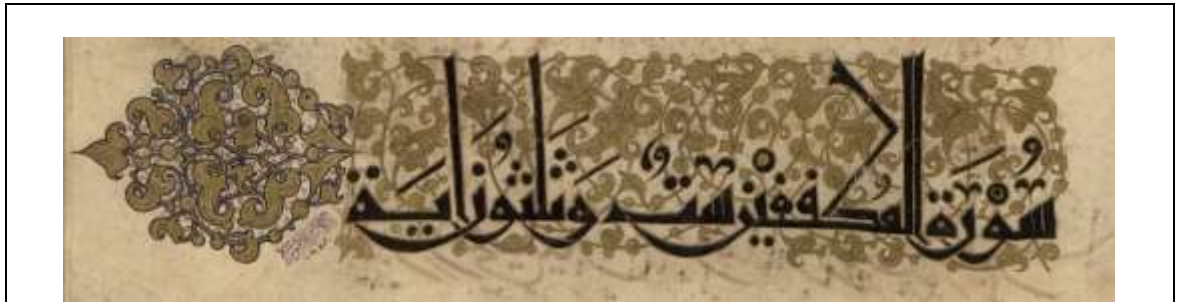 سورة المطففين ست وثلثون اية